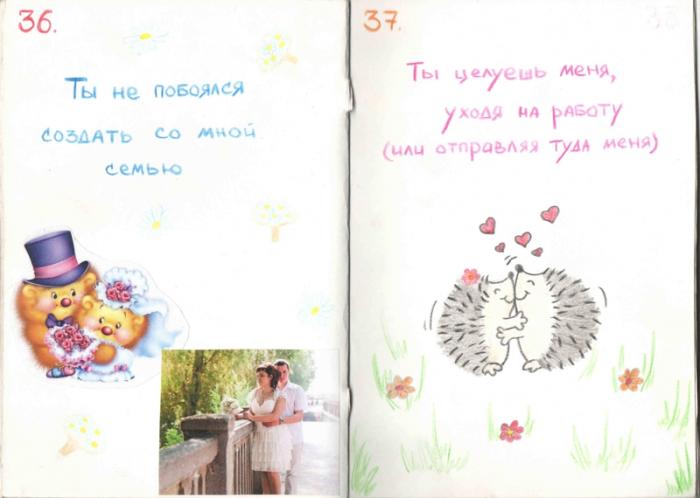 36.
Ты не побоялся
создать со мной
семью
37.
Ты целуешь меня,
уходя на работу
(или отправляя туда меня)